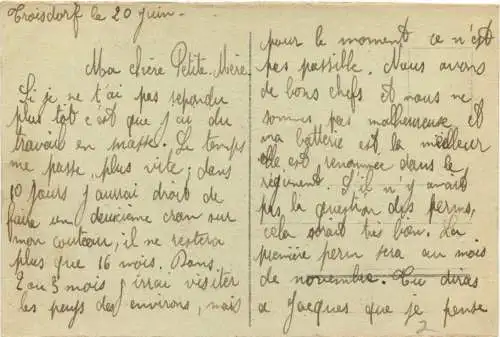 Troisdorf le 20 juin.
Ma chère Petite Mère
Si je ne t'ai pas repondu
plus tôt c'est que j'ai du
travail en masse. Le temps
me passe plus vite; dans
10 jours j'aurai droit de
faire un deuxieme cran sur
mon couteau, il ne restera
plus que 16 mois. Dans
2 ou 3 mois j'irrai visiter
les pays des environs, mais
pour le moment ce n'est
pas possible. Nous avons
de bons chefs et nous ne
sommes pas malheureuse et
ma batterie est la meilleur
elle est renommée dans le
régiment. S'il n'y avait
pas la question des perms,
cela serait très bien. La
première perm sera au mois
de novembre. Tu diras
a Jacques que je pense
2